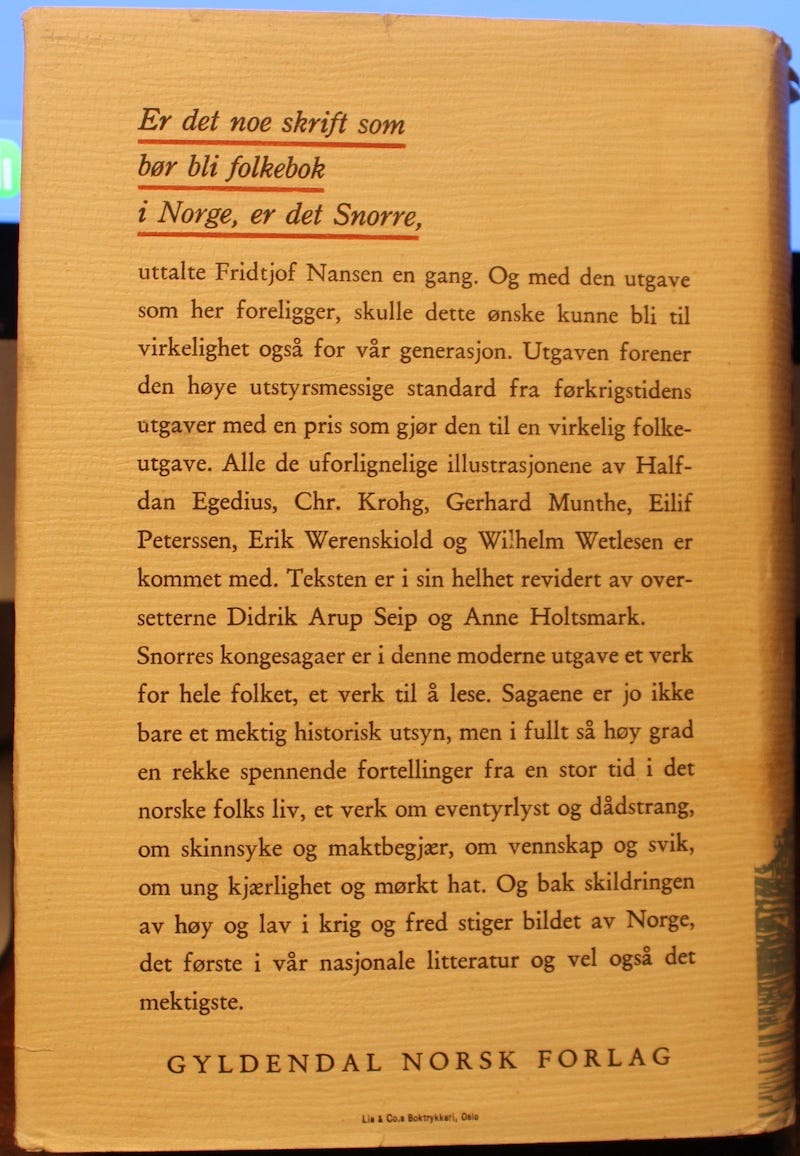 Er det noe skrift som
bør bli folkebok
i Norge, er det Snorre,
uttalte Fridtjof Nansen en gang. Og med den utgave
som her foreligger, skulle dette ønske kunne bli til
virkelighet også for vår generasjon. Utgaven forener
den høye utstyrsmessige standard fra førkrigstidens
utgaver med en pris som gjør den til en virkelig folke-
utgave. Alle de uforlignelige illustrasjonene av Half-
dan Egedius, Chr. Krohg, Gerhard Munthe, Eilif
Peterssen, Erik Werenskiold og Wilhelm Wetlesen er
kommet med. Teksten er i sin helhet revidert av over-
setterne Didrik Arup Seip og Anne Holtsmark.
Snorres kongesagaer er i denne moderne utgave et verk
for hele folket, et verk til å lese. Sagaene er jo ikke
bare et mektig historisk utsyn, men i fullt så høy grad
en rekke spennende fortellinger fra en stor tid i det
norske folks liv, et verk om eventyrlyst og dådstrang,
om skinnsyke og maktbegjær, om vennskap og svik,
om ung kjærlighet og mørkt hat. Og bak skildringen
av høy og lav i krig og fred stiger bildet av Norge,
det første i vår nasjonale litteratur og vel også det
mektigste.
GYLDENDAL NORSK FORLAG
Lie & Co.s Boktrykkeri, Oslo